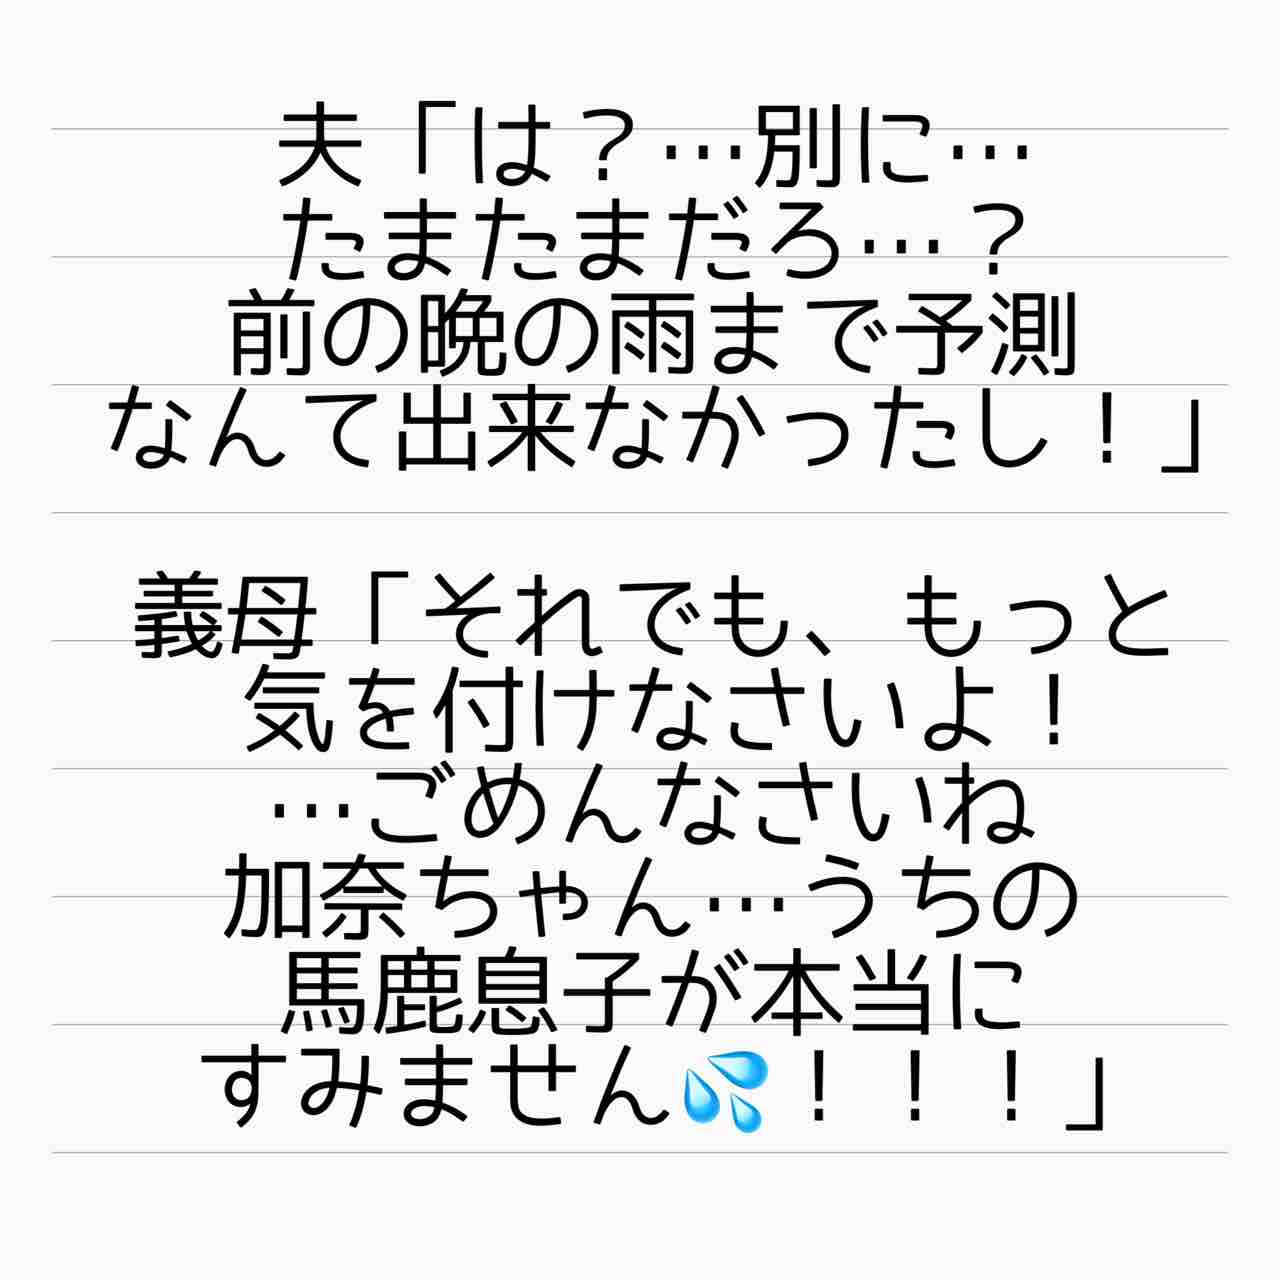 夫「は？…別に…
たまたまだろ…？
前の晩の雨まで予測
なんて出来なかったし！」
義母「それでも、もっと
気を付けなさいよ！
…ごめんなさいね
加奈ちゃん…うちの
馬鹿息子が本当に
すみません💦！！！」